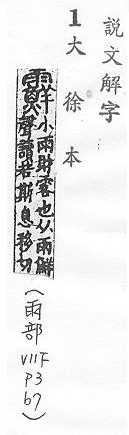 說文解字
1大徐本
小雨財也从雨鮮
聲讀若斯息移切
(雨部
VIIF
P3
b7)